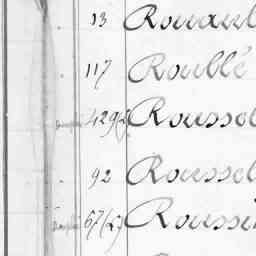 13 Rouaul
117 Roublé
429(2) Roussel
92 Roussel
67(2) Roussi